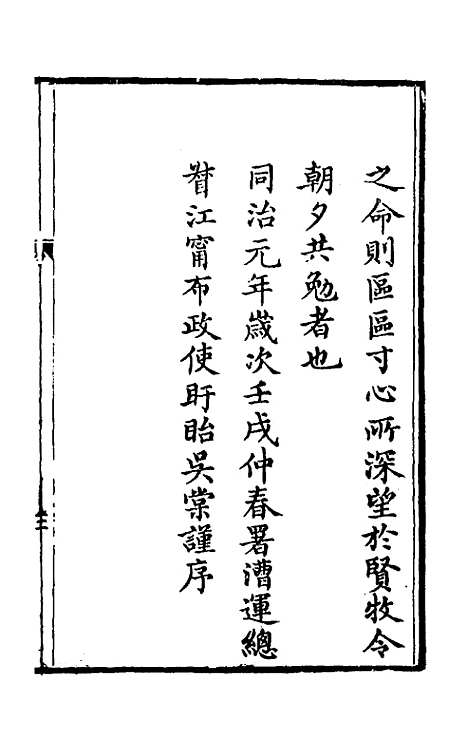 之命則區區寸心所深望於賢牧令
朝夕共勉者也
同治元年歲次壬戌仲春署漕運總
督江甯布政使盱眙吳棠謹序